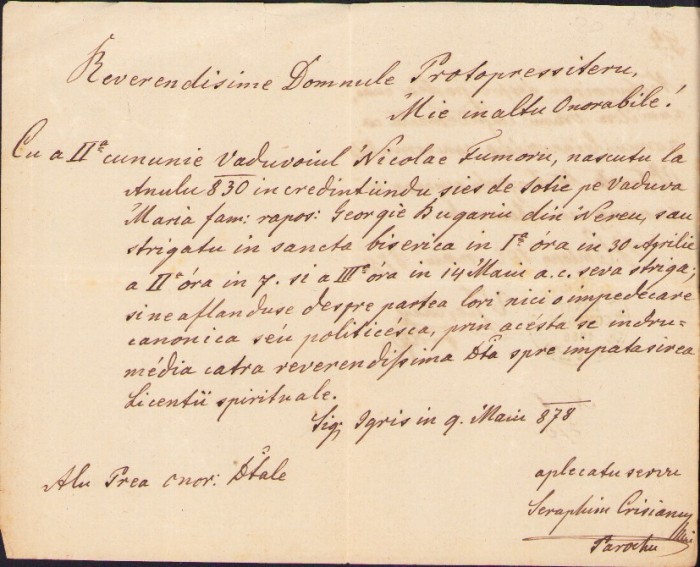 Reverendisime Domnule Protopressiteru,
Mie inaltu Onorabile!
Cu a IIª cununie Vaduvoiul Nicolae Fumoru, nascutu la
Anulu 830 in credintiindu sies de Sotie pe Vaduva
Maria fam: rapos: Georgie Bugariu din Nereu, sau
strigatu in sancta biserica in Iª óra in 30 Aprilie
a IIª óra in 7. si a IIIª óra in 14 Maiu a.c. seva striga,
si ne aflanduse despre partea lori nici o impedecare
canonica séu politicésca, prin acésta se indru-
média catra reverendissima Dta spre impatasirea
Licentii spirituale.
Sig. Igris in 9. Maiu 878
Alu Prea onor: Dtale
aplecatu servu
Seraphim Crisianu
Parochu